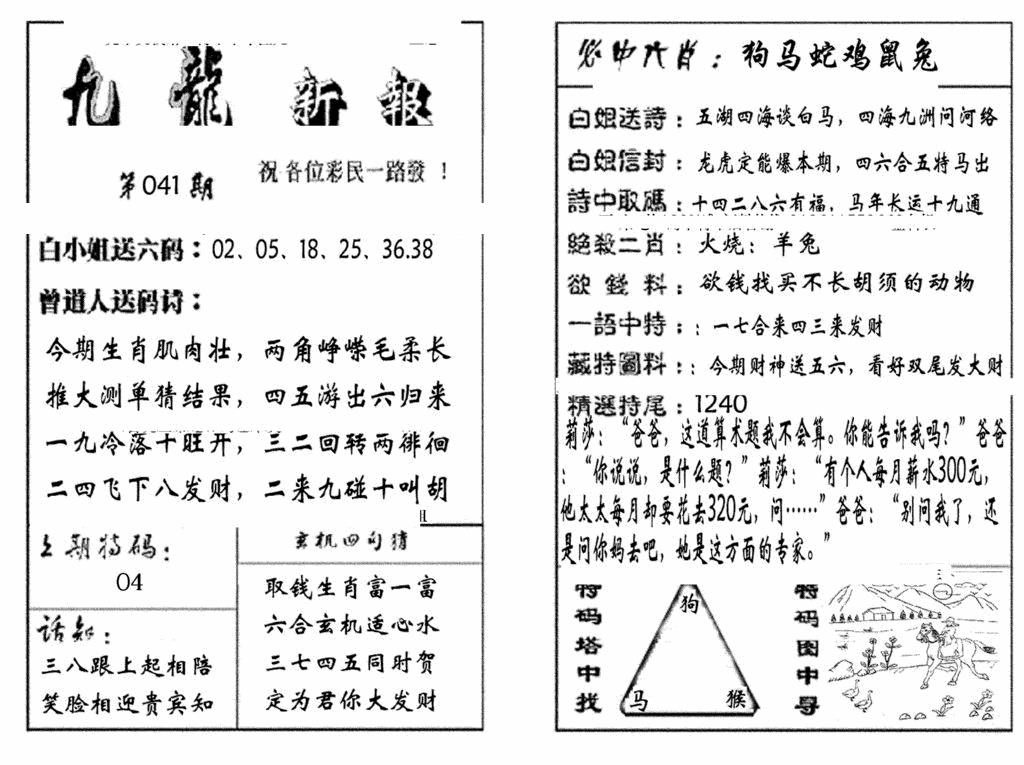 九龍新報
第041期
祝各位彩民一路發！
白小姐送六码：02、05、18、25、36.38
曾道人送码诗：
今期生肖肌肉壮，两角峥嵘毛柔长
推大测单猜结果，四五游出六归来
一九冷落十旺开，三二回转两徘徊
二四飞下八发财，二来九碰十叫胡
上期特码：
04
话知：
三八跟上起相陪
笑脸相迎贵宾知
玄机四句猜
取钱生肖富一富
六合玄机适心水
三七四五同时贺
定为君你大发财
必中六肖：狗马蛇鸡鼠兔
白姐送詩：五湖四海谈白马，四海九洲问河络
白姐信封：龙虎定能爆本期，四六合五特马出
詩中取碼：十四二八六有福，马年长运十九通
絕殺二肖：火烧：羊兔
欲錢料：欲钱找买不长胡须的动物
一語中特：：一七合来四三来发财
藏特圖料：：今期财神送五六，看好双尾发大财
精選特尾：1240
莉莎：“爸爸，这道算术题我不会算。你能告诉我吗？”爸爸
：“你说说，是什么题？”莉莎：“有个人每月薪水300元，
他太太每月却要花去320元，问……”爸爸：“别问我了，还
是问你妈去吧，她是这方面的专家。”
特码塔中找
狗
马
猴
特码图中寻